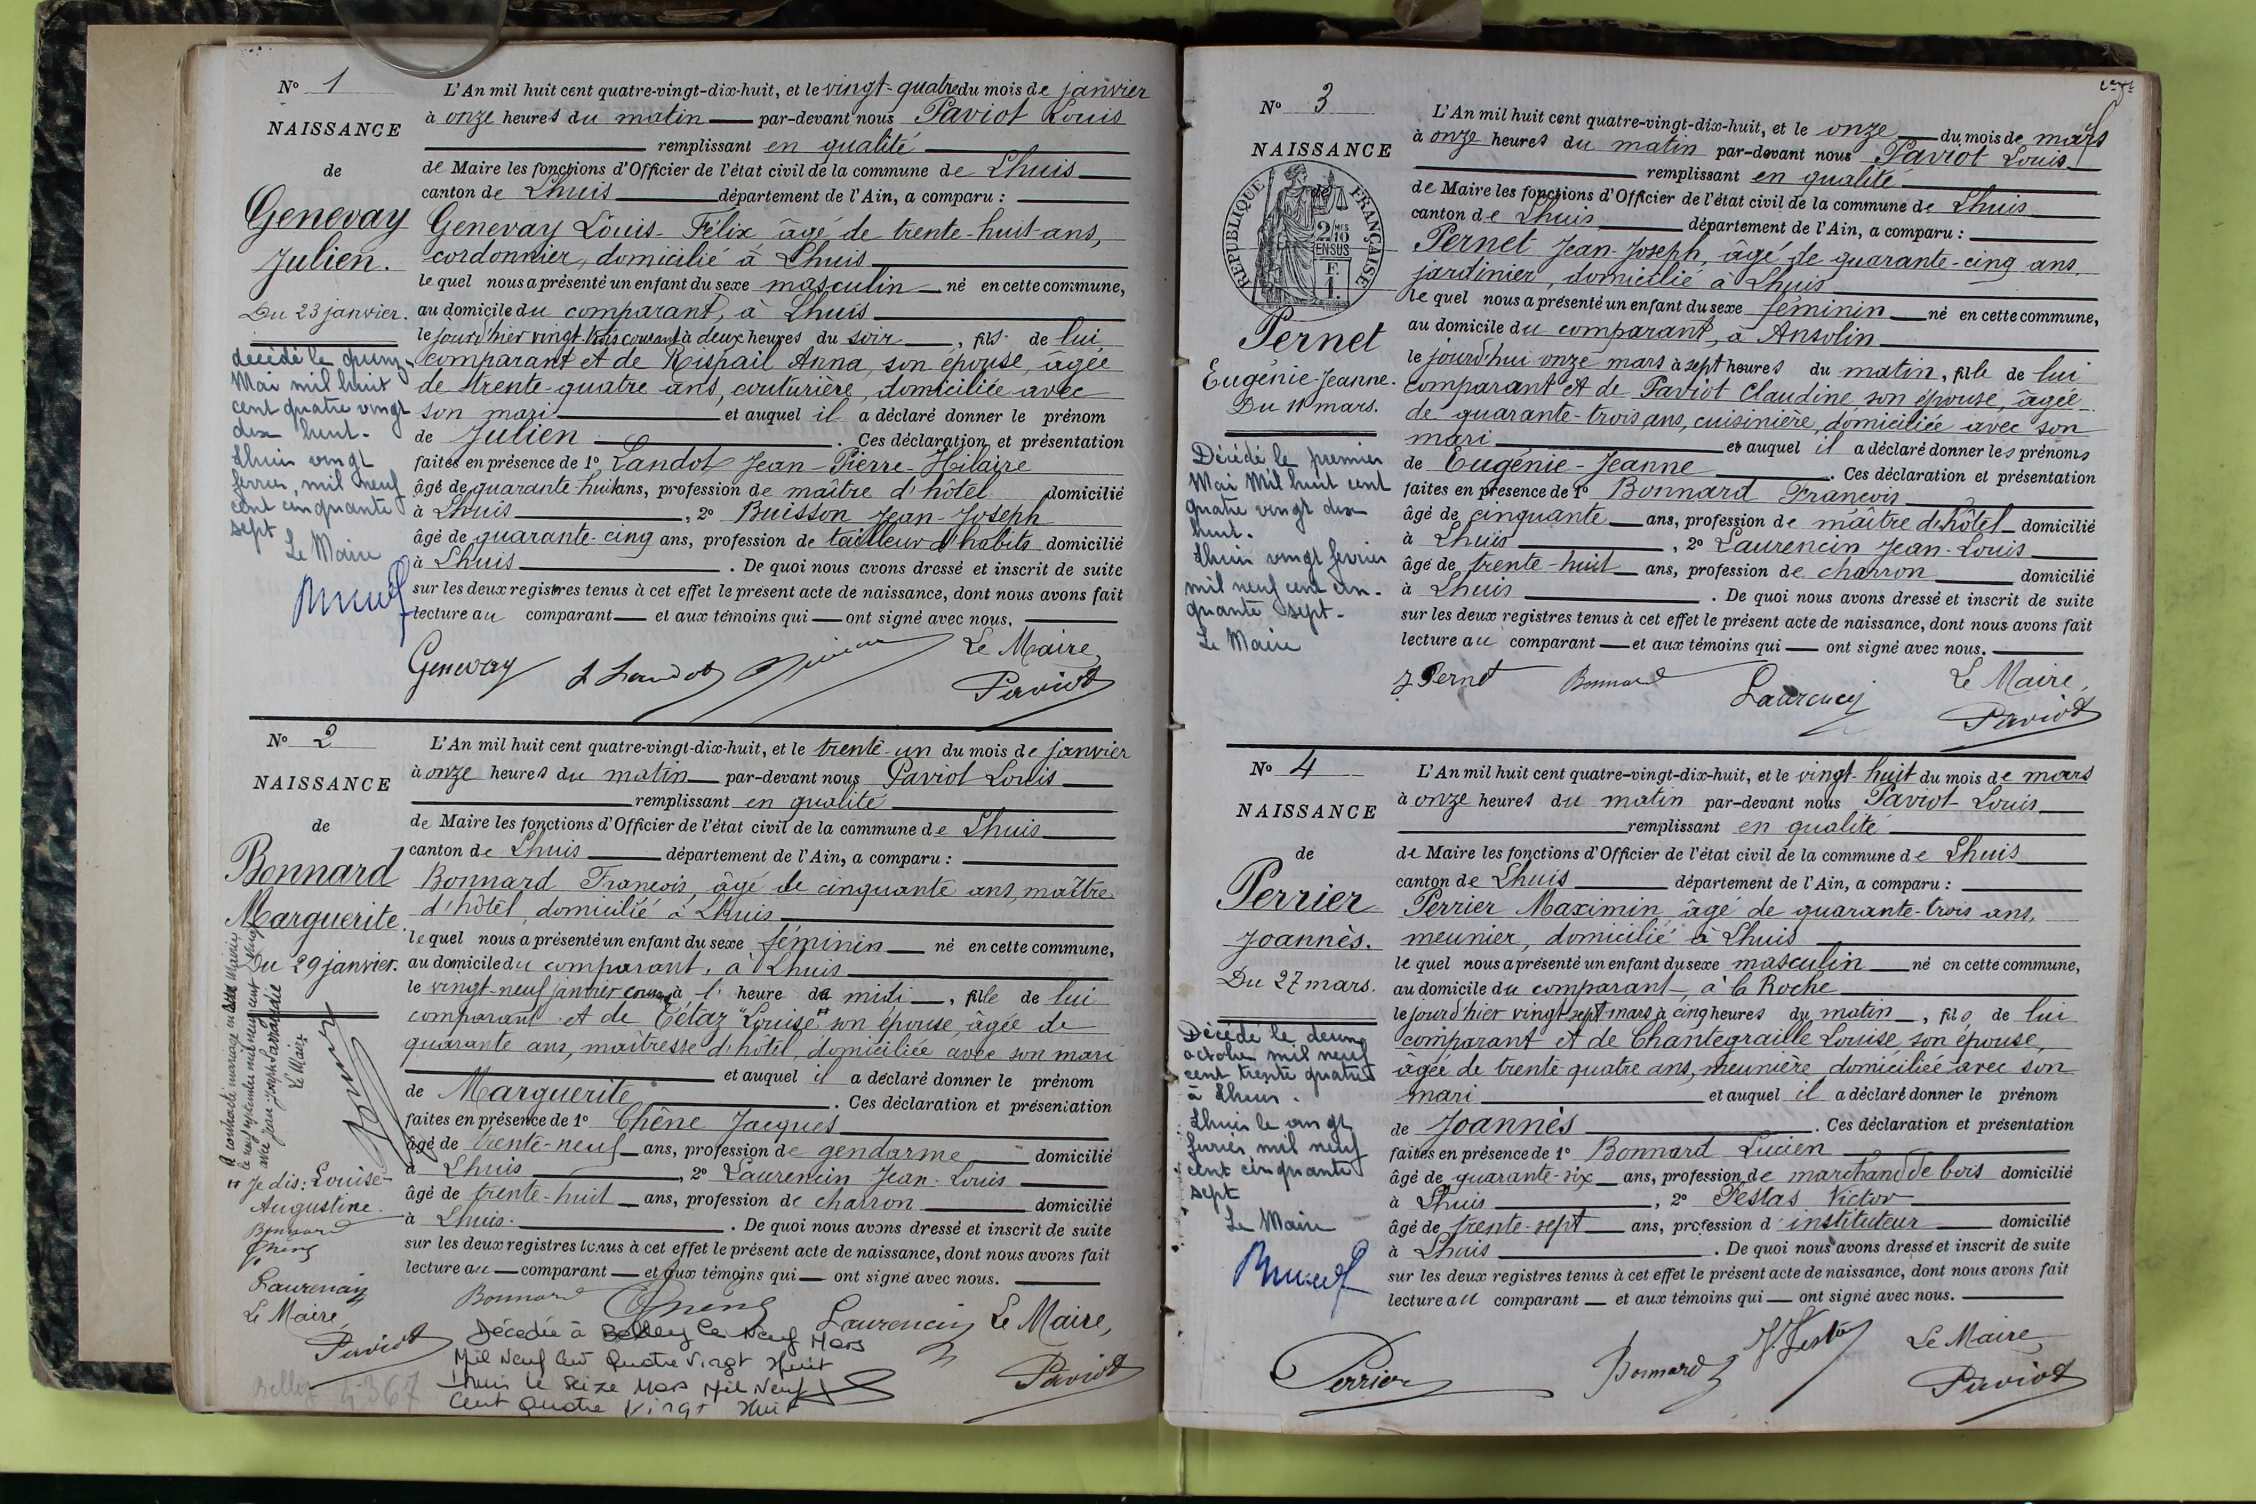 N° 1
NAISSANCE
de
Genevay
Julien.
Du 23 janvier.
décédé le quinze
Mai mil huit
cent quatre vingt
dix huit.
Lhuis vingt
fevrier, mil neuf
cent cinquante
sept
Le Maire
L'An mil huit cent quatre-vingt-dix-huit, et le vingt-quatre du mois de janvier
à onze heures du matin par-devant nous Paviot Louis
remplissant en qualité
de Maire les fonctions d'Officier de l'état civil de la commune de Lhuis
canton de Lhuis département de l'Ain, a comparu :
Genevay Louis-Félix âgé de trente-huit ans,
cordonnier, domicilié à Lhuis
le quel nous a présenté un enfant du sexe masculin né en cette commune,
au domicile du comparant, à Lhuis
le jourd'hier vingt-trois courant à deux heures du soir, fils de lui
comparant et de Rispail Anna, son épouse, âgée
de trente-quatre ans, couturière, domiciliée avec
son mari et auquel il a déclaré donner le prénom
de Julien. Ces déclaration et présentation
faites en présence de 1° Landot Jean-Pierre-Hilaire
âgé de quarante-huit ans, profession de maître d'hôtel domicilié
à Lhuis, 2° Buisson Jean-Joseph
âgé de quarante-cinq ans, profession de tailleur d'habits domicilié
à Lhuis. De quoi nous avons dressé et inscrit de suite
sur les deux registres tenus à cet effet le présent acte de naissance, dont nous avons fait
lecture au comparant et aux témoins qui ont signé avec nous.
Genevay Landot Le Maire,
Paviot
N° 2
NAISSANCE
de
Bonnard
Marguerite.
Du 29 janvier.
A contracté mariage en Mairie
le neuf septembre mil neuf cent
avec Jean-Joseph
Le Maire
" Je dis: Louise-
Augustine.
Bonnard
Chêne
Laurencin
Le Maire,
Paviot
L'An mil huit cent quatre-vingt-dix-huit, et le trente-un du mois de janvier
à onze heures du matin par-devant nous Paviot Louis
remplissant en qualité
de Maire les fonctions d'Officier de l'état civil de la commune de Lhuis
canton de Lhuis département de l'Ain, a comparu :
Bonnard François, âgé de cinquante ans, maître
d'hôtel, domicilié à Lhuis
le quel nous a présenté un enfant du sexe féminin né en cette commune,
au domicile du comparant, à Lhuis
le vingt-neuf janvier courant à l' heure de midi, fille de lui
comparant et de Tétaz "Louise" son épouse, âgée de
quarante ans, maîtresse d'hôtel, domiciliée avec son mari
et auquel il a déclaré donner le prénom
de Marguerite. Ces déclaration et présentation
faites en présence de 1° Chêne Jacques
âgé de trente-neuf ans, profession de gendarme domicilié
à Lhuis, 2° Laurencin Jean-Louis
âgé de trente-huit ans, profession de charron domicilié
à Lhuis. De quoi nous avons dressé et inscrit de suite
sur les deux registres tenus à cet effet le présent acte de naissance, dont nous avons fait
lecture au comparant et aux témoins qui ont signé avec nous.
Bonnard Chêne Laurencin Le Maire,
Paviot
Décédée à Belley le Neuf Mars
Mil Neuf Cent Quatre Vingt Huit
Lhuis le Seize Mars Mil Neuf
Cent Quatre Vingt Huit
N° 3
NAISSANCE
de
RÉPUBLIQUE FRANÇAISE
2/10 MES
EN SUS
Pernet
Eugénie-Jeanne.
Du 11 mars.
Décédé le premier
Mai Mil huit cent
quatre vingt dix
huit.
Lhuis vingt fevrier
mil neuf cent cin-
quante sept.
Le Maire
L'An mil huit cent quatre-vingt-dix-huit, et le onze du mois de mars
à onze heures du matin par-devant nous Paviot Louis
remplissant en qualité
de Maire les fonctions d'Officier de l'état civil de la commune de Lhuis
canton de Lhuis département de l'Ain, a comparu :
Pernet Jean-Joseph, âgé de quarante-cinq ans,
jardinier, domicilié à Lhuis
le quel nous a présenté un enfant du sexe féminin né en cette commune,
au domicile du comparant, à Ansolin
le jourd'hui onze mars à sept heures du matin, fille de lui
comparant et de Paviot Claudine son épouse, âgée
de quarante-trois ans, cuisinière, domiciliée avec son
mari et auquel il a déclaré donner les prénoms
de Eugénie-Jeanne. Ces déclaration et présentation
faites en présence de 1° Bonnard François
âgé de cinquante ans, profession de maître d'hôtel domicilié
à Lhuis, 2° Laurencin Jean-Louis
âgé de trente-huit ans, profession de charron domicilié
à Lhuis. De quoi nous avons dressé et inscrit de suite
sur les deux registres tenus à cet effet le présent acte de naissance, dont nous avons fait
lecture au comparant et aux témoins qui ont signé avec nous.
J Pernet Bonnard Laurencin Le Maire,
Paviot
N° 4
NAISSANCE
de
Perrier
Joannès.
Du 27 mars.
Décédé le deux
octobre mil neuf
cent trente quatre
à Lhuis.
Lhuis le vingt
fevrier mil neuf
cent cinquante
sept
Le Maire
L'An mil huit cent quatre-vingt-dix-huit, et le vingt-huit du mois de mars
à onze heures du matin par-devant nous Paviot Louis
remplissant en qualité
de Maire les fonctions d'Officier de l'état civil de la commune de Lhuis
canton de Lhuis département de l'Ain, a comparu :
Perrier Maximin, âgé de quarante-trois ans,
meunier, domicilié à Lhuis
le quel nous a présenté un enfant du sexe masculin né en cette commune,
au domicile du comparant, à la Roche
le jourd'hier vingt-sept mars à cinq heures du matin, fils de lui
comparant et de Chantegraille Louise, son épouse,
âgée de trente-quatre ans, meunière, domiciliée avec son
mari et auquel il a déclaré donner le prénom
de Joannès. Ces déclaration et présentation
faites en présence de 1° Bonnard Lucien
âgé de quarante-six ans, profession de marchand de bois domicilié
à Lhuis, 2° Festas Victor
âgé de trente-sept ans, profession d'instituteur domicilié
à Lhuis. De quoi nous avons dressé et inscrit de suite
sur les deux registres tenus à cet effet le présent acte de naissance, dont nous avons fait
lecture au comparant et aux témoins qui ont signé avec nous.
Perrier Bonnard V. Festas Le Maire,
Paviot